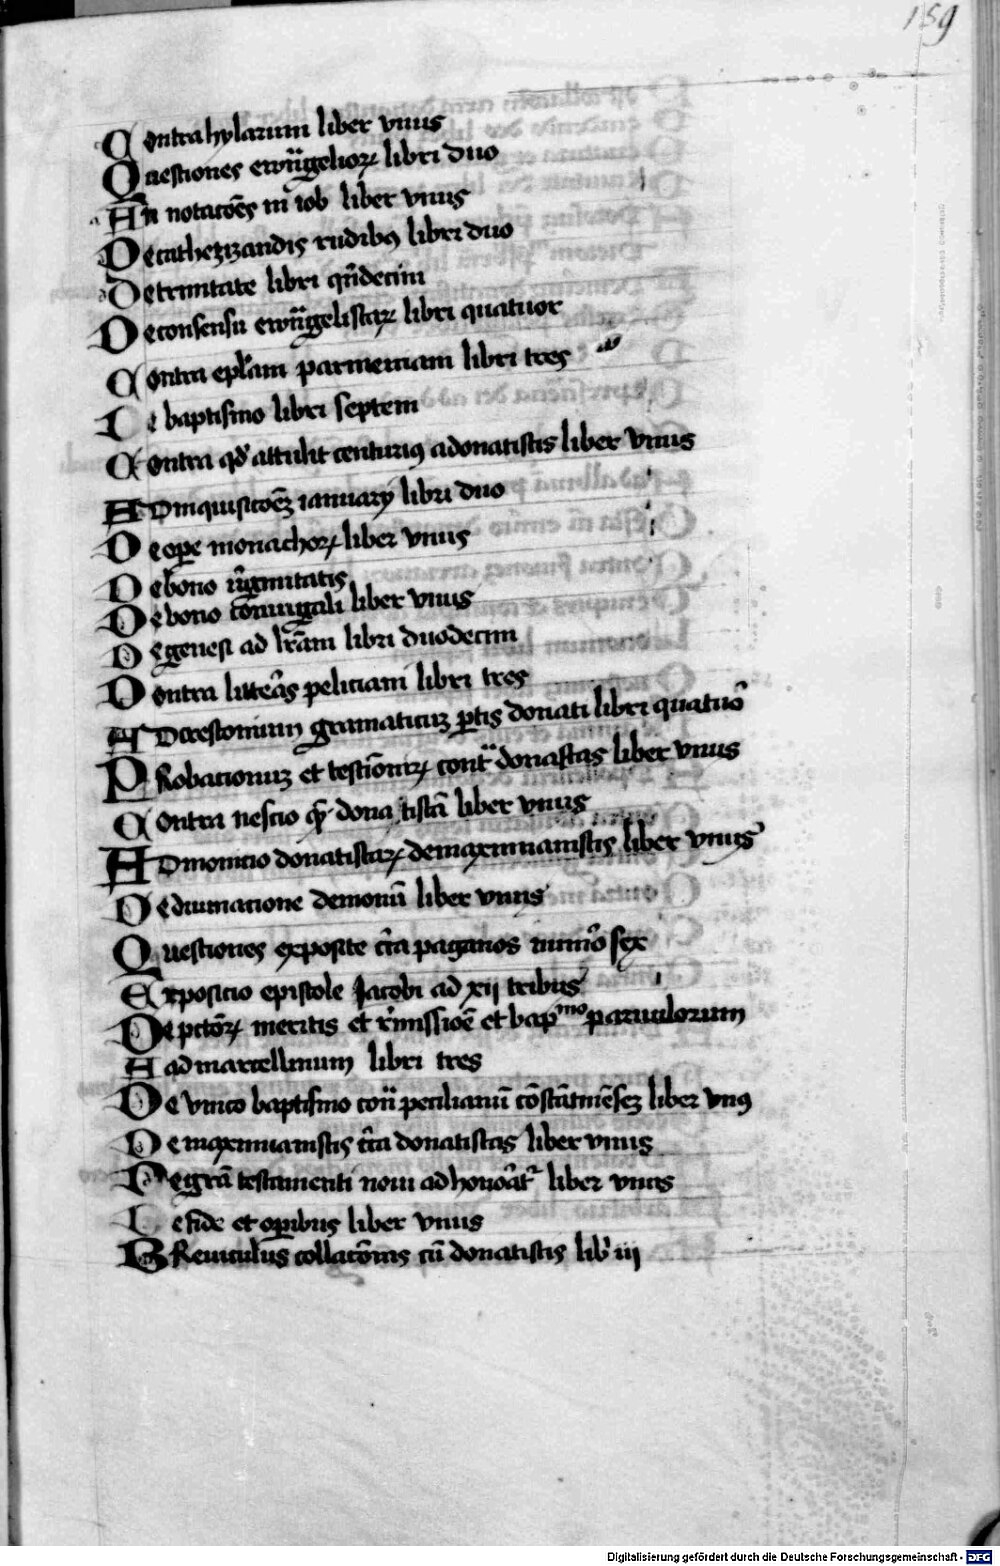 159
Contra hylarium liber vnus
Questiones ewūgeliorꝝ libri duo
An notacōēs in iob liber vnus
De cathezizandis rudibꝰ libri duo
De trinitate libri qn̄decim
De consensu ewūgelistarꝝ libri quatuor
Contra epl̄am parmeniani libri tres
De baptismo libri septem
Contra qd̕ attulit centuriꝰ a donatistis liber vnus
Ad inquisicōēs ianuarij libri duo
De oꝑe monachorꝝ liber vnus
De bono v̓ginitatis
De bono coniugali liber vnus
De genesi ad lr̄am libri duodecim
Dontra litteras peliciani libri tres
Ad crestonium gramaticuꝫ ꝑtis donati libri quatuor̄
Probacionuꝫ et testīonioꝝ contͣ donastas liber vnus
Contra nescio quē donatistā liber vnus
Admonicio donatistarꝝ de maximianistis liber vnus
De diuinacione demonū liber vnus
Questiones exposite cͨ̄a paganos numͦo sex
Exposicio epistole Jacobi ad xij tribus
De pctōrꝝ meritis et r̓missiōe et bapᵐᵒ paruulorum
Aad marcellinum libri tres
De vnico baptismo con̄ pecilianū cōstātinēseꝫ liber vnꝰ
De maximianistis cͨ̄a donatistas liber vnus
De grā testamenti noui ad honoāt̓ liber vnus
De fide et oꝑibus liber vnus
Breuiculus collacōnis cū donatistis lib̓ iij
Digitalisierung gefördert durch die Deutsche Forschungsgemeinschaft - DFG